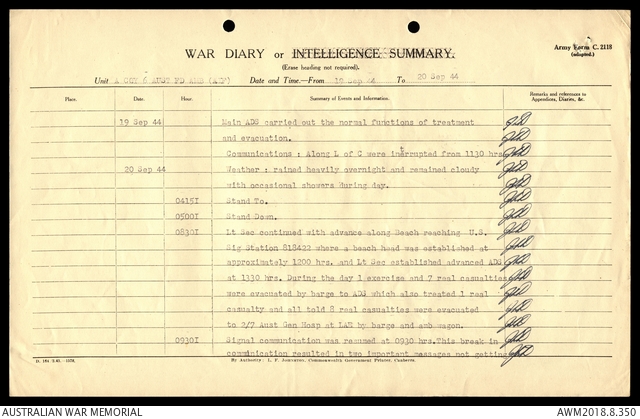 Army Form C. 2118
(adapted.)
WAR DIARY or INTELLIGENCE SUMMARY.
(Erase heading not required).
Unit A COY 6 AUST FD AMB (AIF) Date and Time.—From 19 Sep 44 To 20 Sep 44
Place. Date. Hour. Summary of Events and Information. Remarks and references to Appendices, Diaries, &c.
19 Sep 44 Main ADS carried out the normal functions of treatment
and evacuation.
Communications : Along L of C were interrupted from 1130 hrs
20 Sep 44 Weather : rained heavily overnight and remained cloudy
with occasional showers during day.
0415I Stand To.
0500I Stand Down.
0830I Lt Sec continued with advance along Beach reaching U.S.
Sig Station 818422 where a beach head was established at
approximately 1200 hrs. and Lt Sec established advanced ADS
at 1330 hrs. During the day 1 exercise and 7 real casualties
were evacuated by barge to ADS which also treated 1 real
casualty and all told 8 real casualties were evacuated
to 2/7 Aust Gen Hosp at LAE by barge and amb wagon.
0930I Signal communication was resumed at 0930 hrs. This break in
communication resulted in two important messages not getting
By Authority: L. F. Johnston, Commonwealth Government Printer, Canberra.
AUSTRALIAN WAR MEMORIAL
AWM2018.8.350